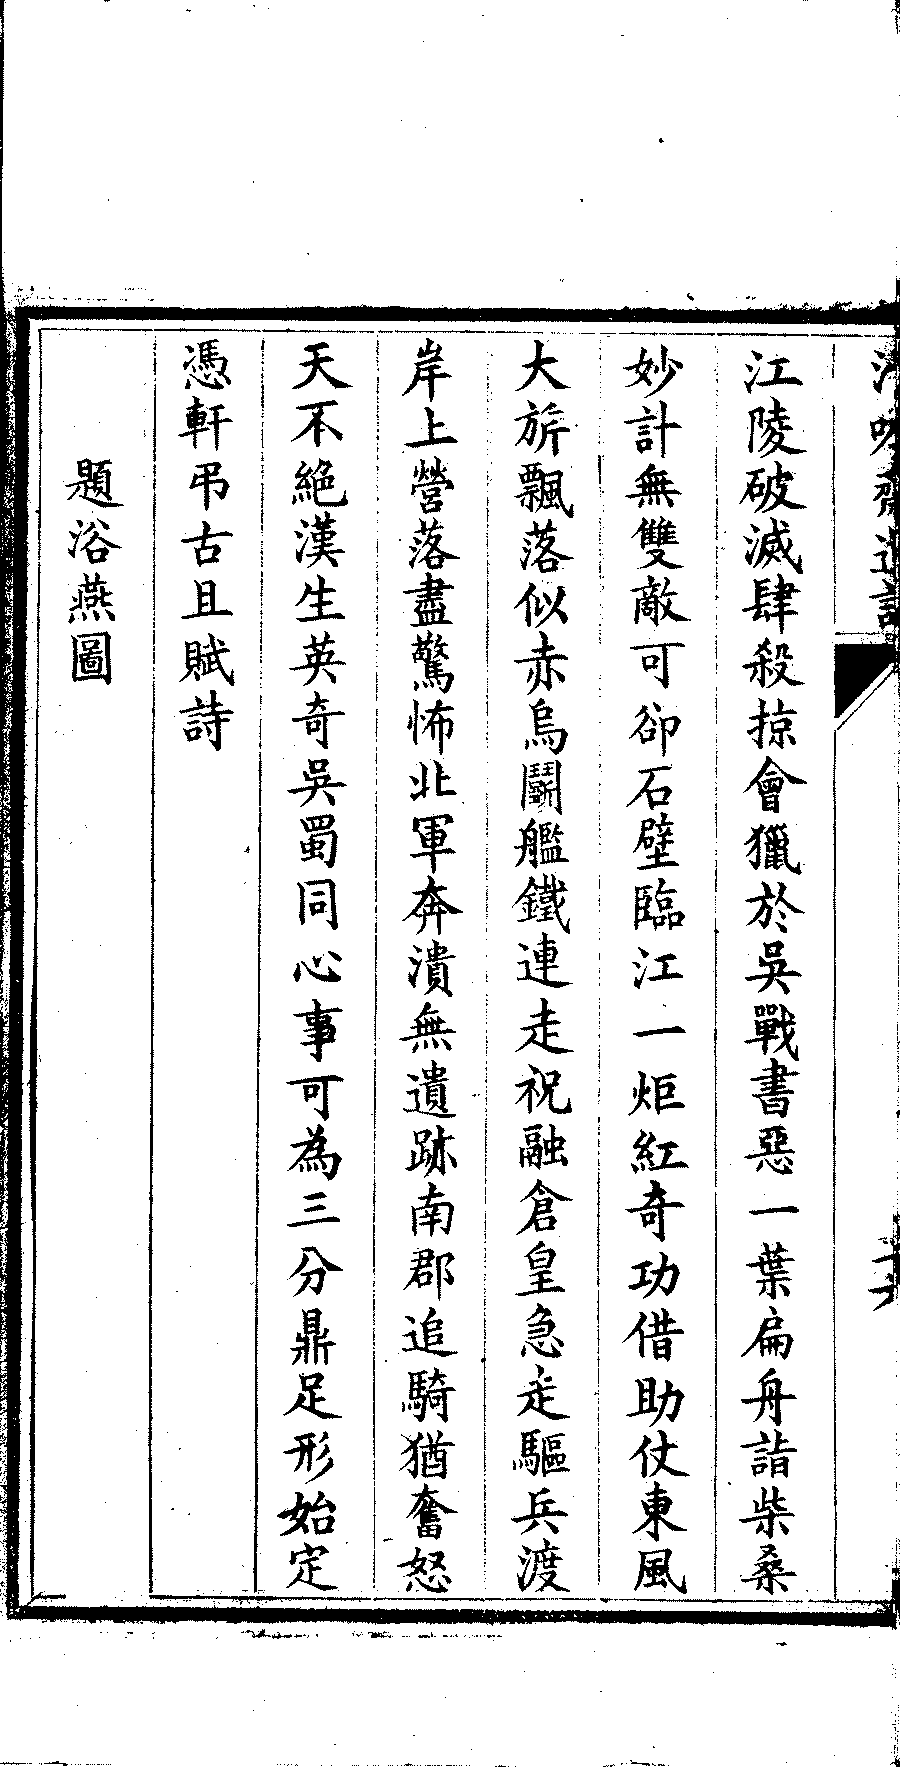 江陵破滅肆殺掠會獵於吳戰書惡一葉扁舟詣柴桑
妙計無雙敵可卻石壁臨江一炬紅奇功借助仗東風
大旂飄落似赤烏鬬艦鐵連走祝融倉皇急走驅兵渡
岸上營落盡驚怖北軍奔潰無遺跡南郡追騎猶奮怒
天不絕漢生英奇吳蜀同心事可為三分鼎足形始定
憑軒弔古且賦詩
題浴燕圖